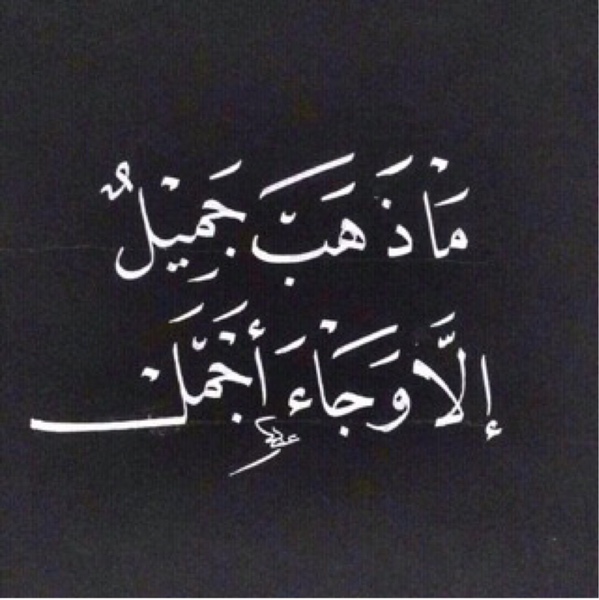 مَاْ ذَهَبَ جَمِيْلٌ
إِلَّا وَجَاْءَ أَجْمَلْ